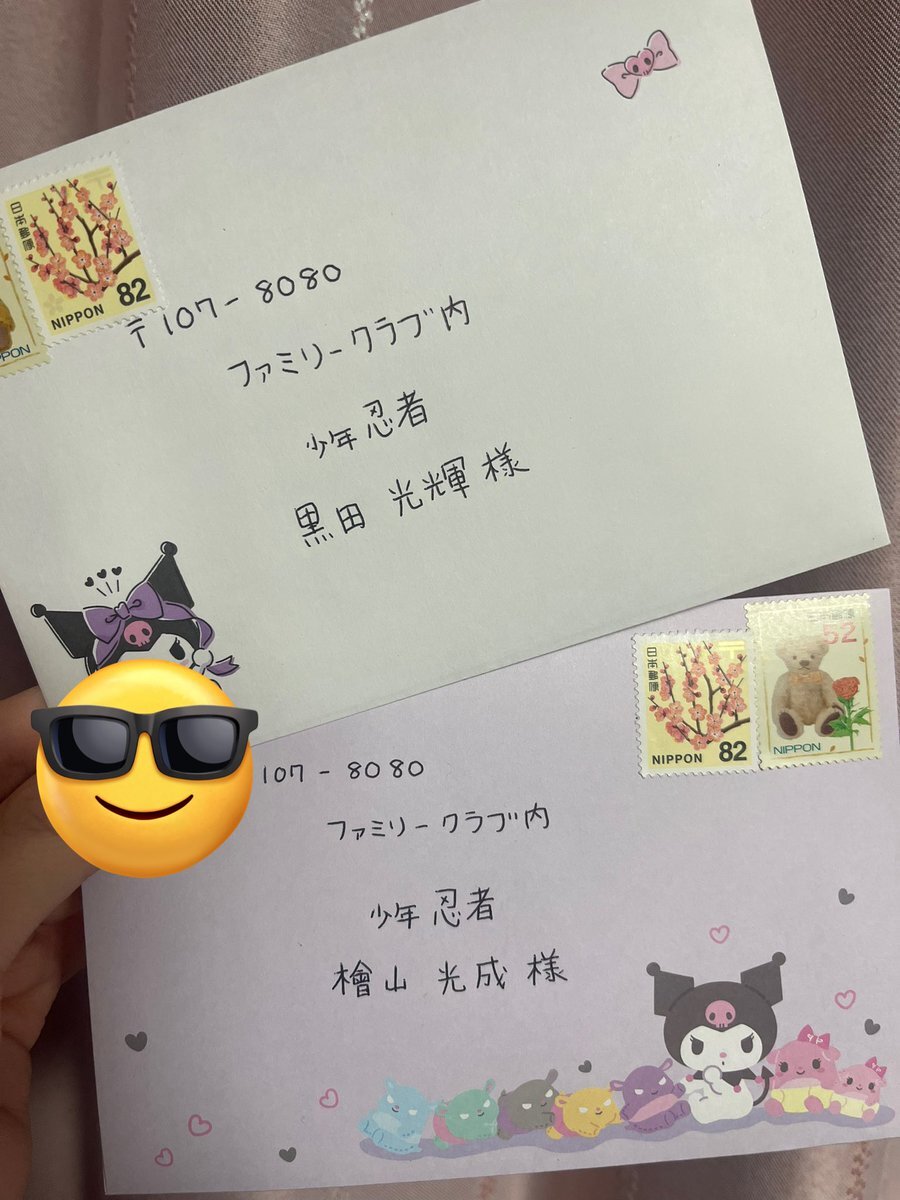 日本郵便
82
NIPPON
PPON
〒107-8080
ファミリークラブ内
少年忍者
黒田 光輝 様
日本郵便
82
NIPPON
52
NIPPON
107-8080
ファミリークラブ内
少年忍者
檜山 光成 様